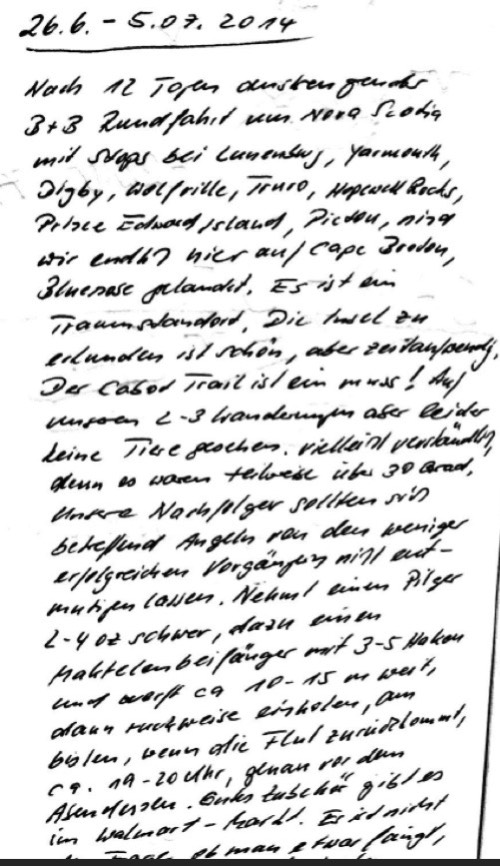 26.6. - 5.07. 2014
Nach 12 Tagen anstrengender
B+B Rundfahrt um Nova Scotia
mit Stops bei Lunenburg, Yarmouth,
Digby, Wolfville, Truro, Hopewell Rocks,
Prince Edward Island, Pictou, sind
wir endlich hier auf Cape Breton,
Bluenose gelandet. Es ist ein
Traumstandort. Die Insel zu
erkunden ist schön, aber zeitaufwendig.
Der Cabot Trail ist ein muss! Auf
unseren 2-3 Wanderungen aber leider
keine Tiere gesehen. Vielleicht verständlich,
denn es waren teilweise über 30 Grad.
Unsere Nachfolger sollten sich
betreffend Angeln von den weniger
erfolgreichen Vorgängern nicht ent-
mutigen lassen. Nehmt einen Pilger
2-4 oz schwer, dazu einen
Makrelenbeifänger mit 3-5 Haken
und werft ca 10-15 m weit,
dann ruckweise einholen, am
besten, wenn die Flut zurückkommt,
ca. 19-20 Uhr, genau vor dem
Abendessen. Gutes Zubehör gibt es
im Walmart-Markt. Es ist nicht
ob man etwas fängt,